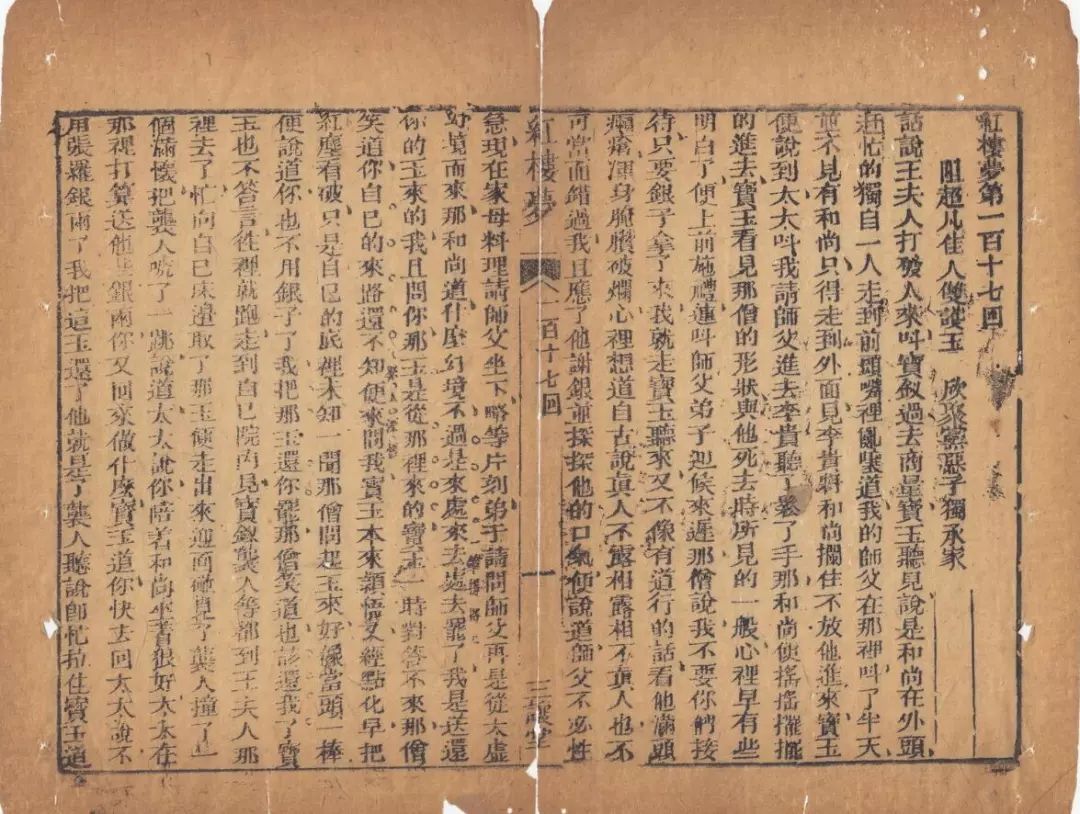 紅樓夢第一百十七回
阻超凡佳人雙護玉　欣聚黨惡子獨承家
話說王夫人打發人來叫寶釵過去商量寶玉聽見說是和尚在外頭
趕忙的獨自一人走到前頭嘴裡亂嚷道我的師父在那裡叫了半天
並不見有和尚只得走到外面見李貴將和尚攔住不放他進來寶玉
便說到太太叫我請師父進去李貴聽了鬆了手那和尚便搖搖擺擺
的進去寶玉看見那僧的形狀與他死去時所見的一般心裡早有些
明白了便上前施禮連叫師父弟子迎候來遲那僧說我不要你們接
待只要銀子拿了來我就走寶玉聽來又不像有道行的話看他滿頭
癩瘡渾身腌臢破爛心裡想道自古說真人不露相露相不真人也不
可當面錯過我且應了他謝銀並探探他的口氣便說道師父不必性
紅樓夢
一百十七回
一
三讓堂
急現在家母料理請師父坐下略等片刻弟子請問師父再是從太虛
好境而來那和尚道什麼幻境不過是來處來去處去罷了我是送還
你的玉來的我且問你那玉是從那裡來的寶玉一時對答不來那僧
笑道你自己的來路還不知便來問我寶玉本來穎悟又經點化早把
紅塵看破只是自己的底裡未知一聞那僧問起玉來好像當頭一棒
便說道你也不用銀子了我把那玉還你罷那僧笑道也該還我了寶
玉也不答言往裡就跑走到自己院內見寶釵襲人等都到王夫人那
裡去了忙向自己床邊取了那玉便走出來迎面碰見了襲人撞了一
個滿懷把襲人唬了一跳說道太太說你陪着和尚坐着狠好太太在
那裡打算送他些銀兩你又回來做什麼寶玉道你快去回太太說不
用張羅銀兩了我把這玉還了他就是了襲人聽說即忙拉住寶玉道